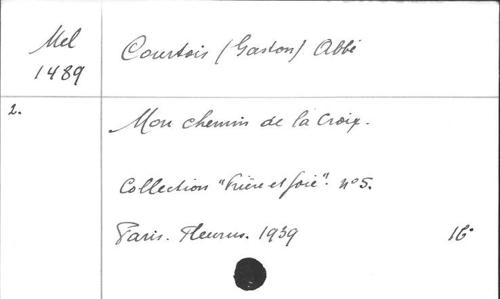 Mel
1489
Courtois (Gaston) Abbé
2.
Mon chemin de la Croix.
Collection "Prière et joie". n°5.
Paris. Fleurus. 1939
16°